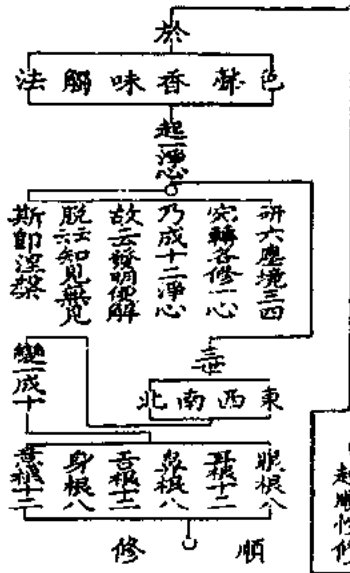 於
色聲香味觸法
起一淨心
研六塵境三四
宛轉各修一心
乃成十二淨心
故云發明便解
脫註知見無見
斯即涅槃
三世
東西南北
變一成十
眼根八
耳根十二
鼻根八
舌根十二
身根八
意根十二
順修
起順性修